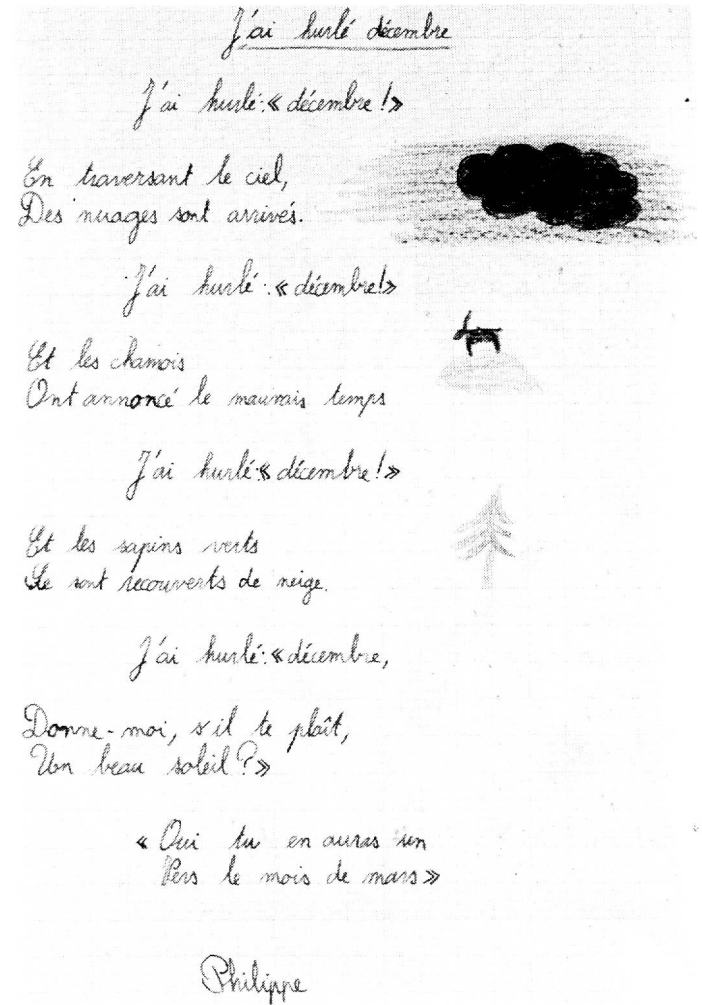 J'ai hurlé décembre
J'ai hurlé : « décembre ! »
En traversant le ciel,
Des nuages sont arrivés.
J'ai hurlé : « décembre ! »
Et les chamois
Ont annoncé le mauvais temps
J'ai hurlé : « décembre ! »
Et les sapins verts
Se sont recouverts de neige.
J'ai hurlé : « décembre,
Donne-moi, s'il te plaît,
Un beau soleil ? »
« Oui tu en auras un
Vers le mois de mars »
Philippe